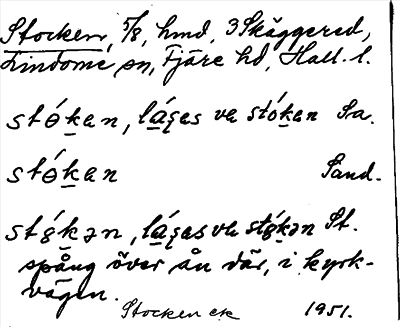 Stocken, 5/8, hmd, 3 Skäggered,
Lindome sn, Fjäre hd, Hall. l.
stó̱kan, lá̱gas va stó̱kan Sa.
stó̱kan Sand.
stó̱kən, lá̱gas va stó̱kən St.
spång över ån där, i kyrk-
vägen.
Stocken ck 1951.